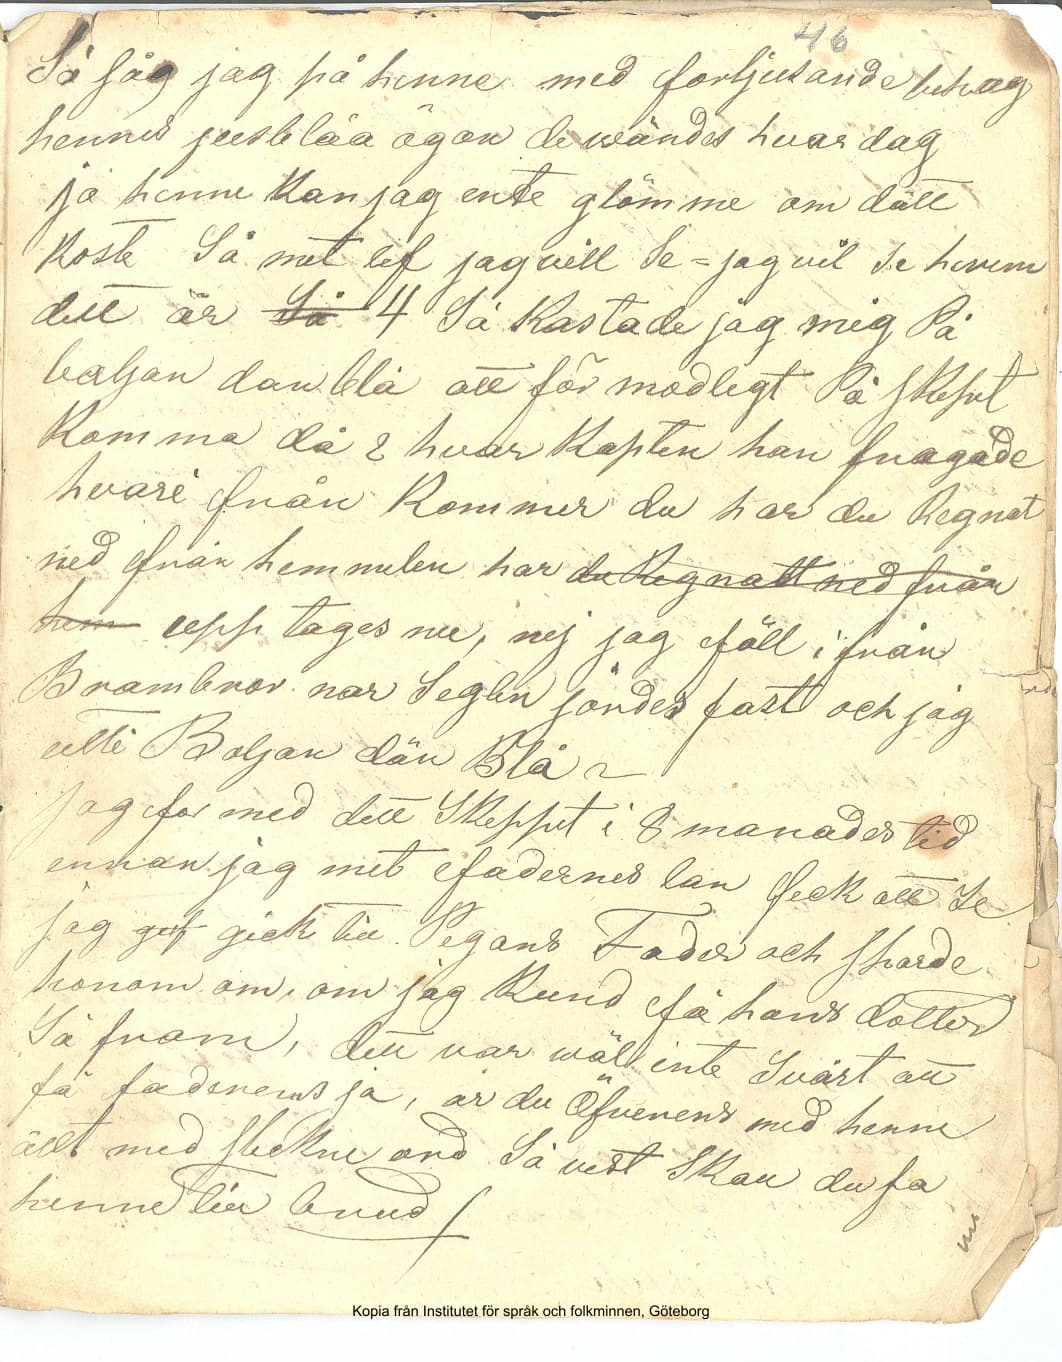 46
Så såg jag på henne med fortjusande behag
hennes jusblåa ögon de wändes hvar dag
ja henne kan jag ente glömme om dätt
koste Så met lif jag vill Se = jag vil se hvem
dett är Så 4 Så Kastade jag mig På
baljan dan blå att för modligt På Skeput
Komma då 2 hvar Kapten han fragade
hvare från Kommer du har du Regnat
ned från hemmelen har du Regnatt ned från
hem upp tages nu, nej jag föll i från
Brambror nar Seglen jördes fast och jag
utti Boljan dän Blå
jag for med dett Skepput i 8 manades tid
ennan jag met fadernes lan feck att Se
jag gick till Pegans Fader och sporde
honom om, om jag Kund få hans dotter
Så fram, dett var wäl inte Svårt att
få faderens ja, är du Öfverens med henne
allt med stekne ord Så vest Skan du fa
henne till brud
Kopia från Institutet för språk och folkminnen, Göteborg